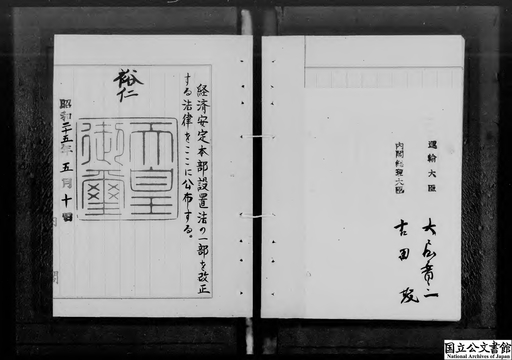 経済安定本部設置法の一部を改正
する法律をここに公布する。
裕仁
天皇
御璽
昭和二十五年五月十日
運輸大臣
内閣総理大臣 吉田茂
国立公文書館
National Archives of Japan